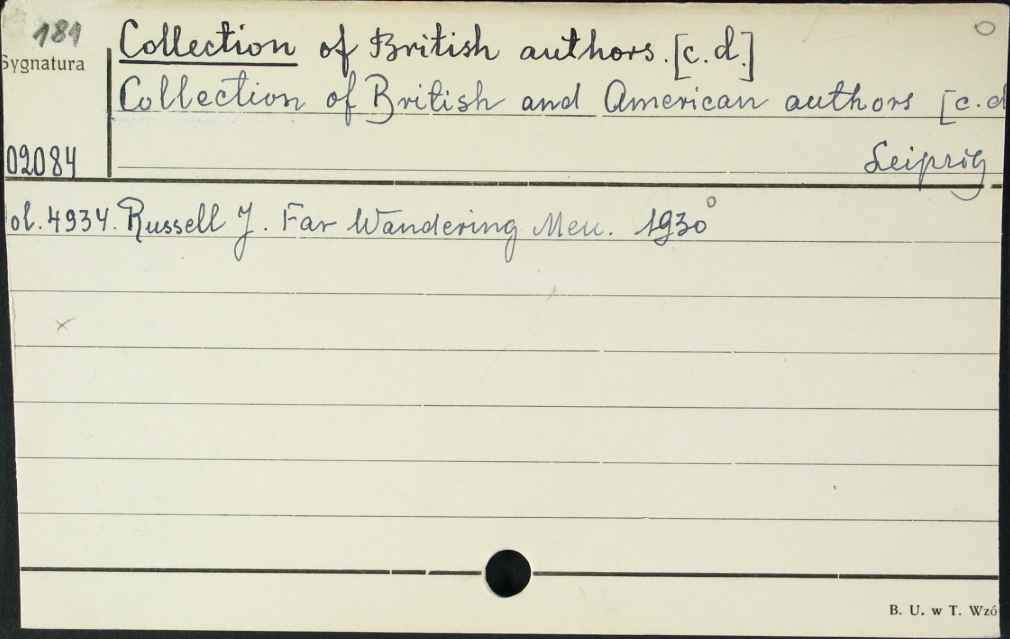 189
Collection of British authors. [c.d.]
Sygnatura
Collection of British and American authors [c.d
02084
Leipzig
ol. 4934. Russell J. Far Wandering Men. 1930°
B. U. w T. Wzó